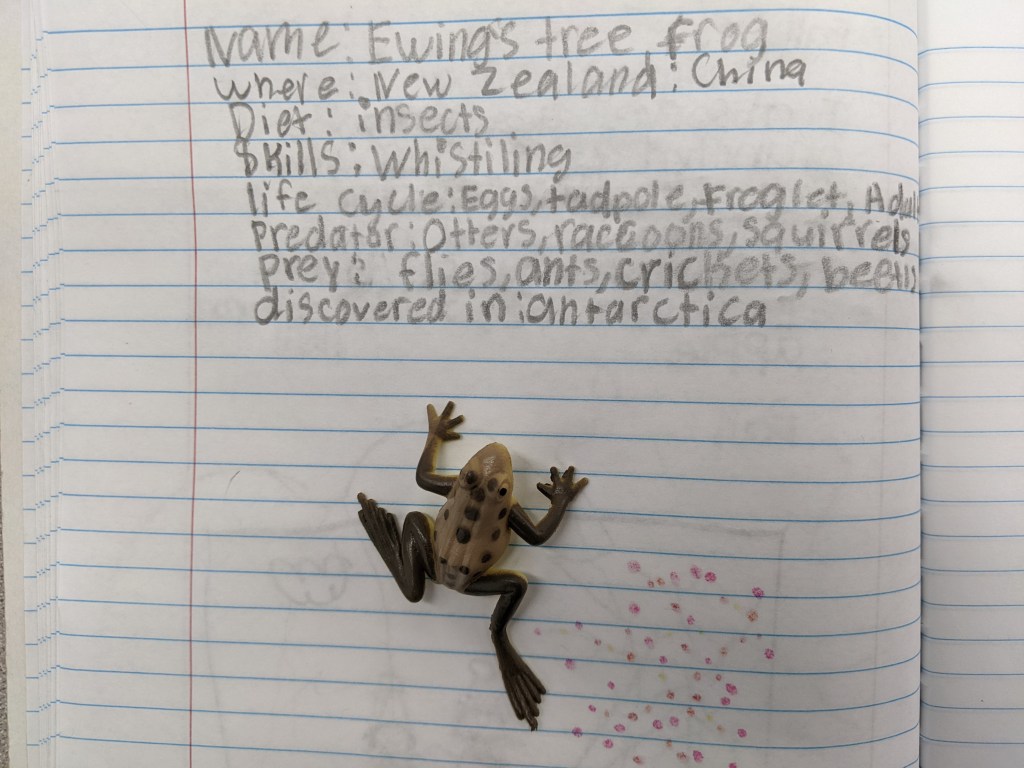 Name: Ewing's tree frog
where: New Zealand: China
Diet: insects
Skills: Whistiling
life cycle: Eggs, tadpole, Froglet, Adul
Predator: Otters, raccoons, squirrels
Prey: flies, ants, crickets, beetls
discovered in: antarctica